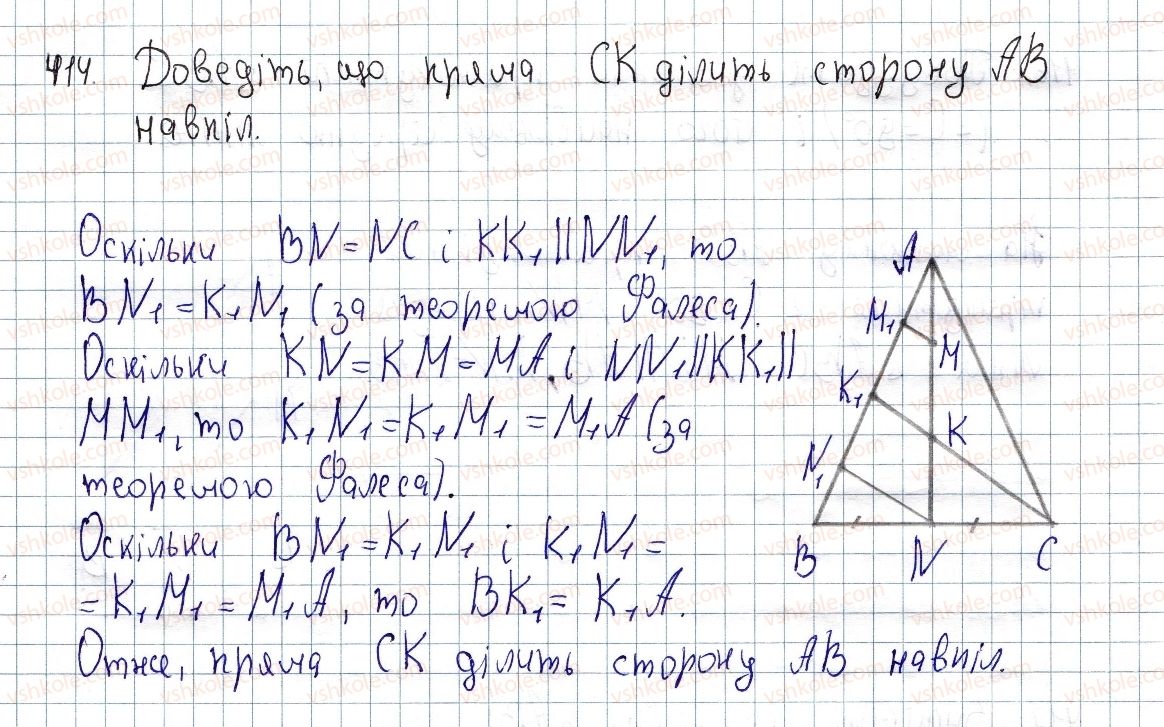 414. Доведіть, що пряма СК ділить сторону АВ
навпіл.
Оскільки BN = NC і KK₁ || NN₁, то
BN₁ = K₁N₁ (за теоремою Фалеса).
Оскільки KN = KM = MA. і NN₁ || KK₁ ||
MM₁, то K₁N₁ = K₁M₁ = M₁A (за
теоремою Фалеса).
Оскільки BN₁ = K₁N₁ і K₁N₁ =
= K₁M₁ = M₁A, то BK₁ = K₁A.
Отже, пряма СК ділить сторону АВ навпіл.
A
M₁
M
K₁
K
N₁
B N C